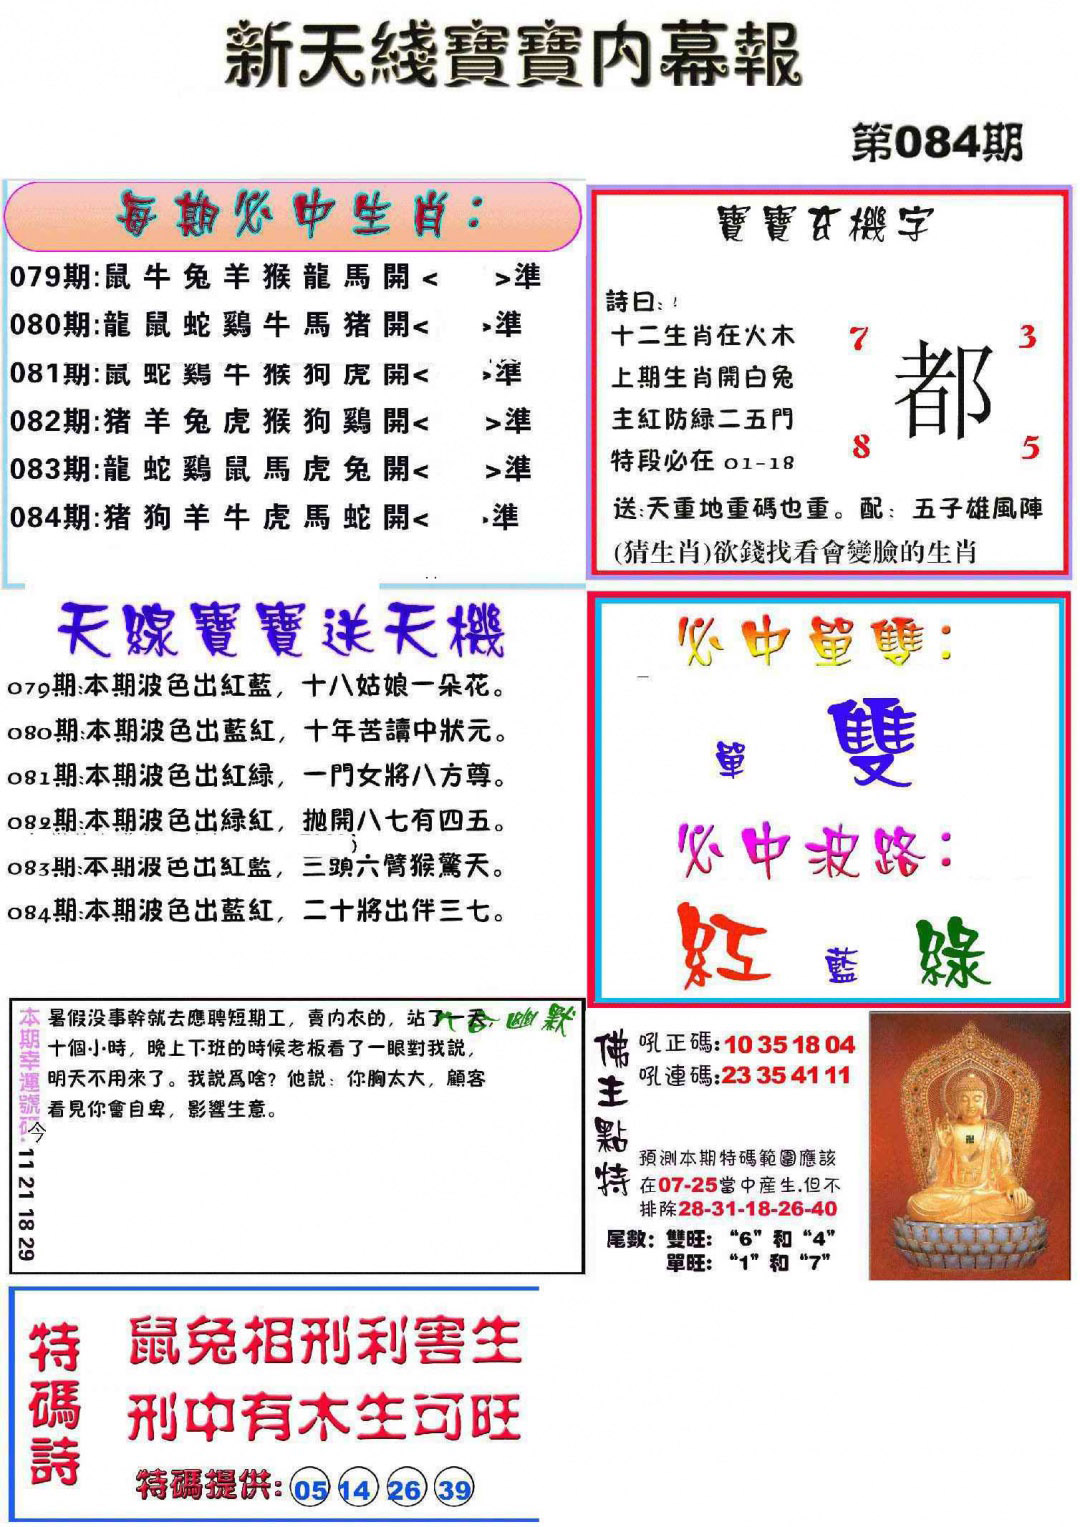 新天綫寶寶内幕報
第084期
每期必中生肖：
079期:鼠牛兔羊猴龍馬開< >準
080期:龍鼠蛇鷄牛馬猪開< >準
081期:鼠蛇鷄牛猴狗虎開< >準
082期:猪羊兔虎猴狗鷄開< >準
083期:龍蛇鷄鼠馬虎兔開< >準
084期:猪狗羊牛虎馬蛇開< >準
寶寶玄機字
詩曰:
十二生肖在火木
上期生肖開白兔
主紅防緑二五門
特段必在 01-18
7 3
都
8 5
送:天重地重碼也重。配：五子雄風陣
(猜生肖)欲錢找看會變臉的生肖
天線寶寶送天機
079期:本期波色出紅藍，十八姑娘一朵花。
080期:本期波色出藍紅，十年苦讀中狀元。
081期:本期波色出紅緑，一門女將八方尊。
082期:本期波色出緑紅，抛開八七有四五。
083期:本期波色出紅藍，三頭六臂猴驚天。
084期:本期波色出藍紅，二十將出伴三七。
必中單雙：
單 雙
必中波路：
紅 藍 綠
本期幸運號碼:
11 21 18 29
六合幽默
暑假没事幹就去應聘短期工，賣内衣的，站了一天，
十個小時，晚上下班的時候老板看了一眼對我説，
明天不用來了。我説爲啥？他説：你胸太大，顧客
看見你會自卑，影響生意。
今
佛主點特
吼正碼:10 35 18 04
吼連碼:23 35 41 11
預測本期特碼範圍應該
在07-25當中産生.但不
排除28-31-18-26-40
尾數：雙旺：“6”和“4”
單旺：“1”和“7”
特碼詩
鼠兔相刑利害生
刑中有木生可旺
特碼提供: 05 14 26 39